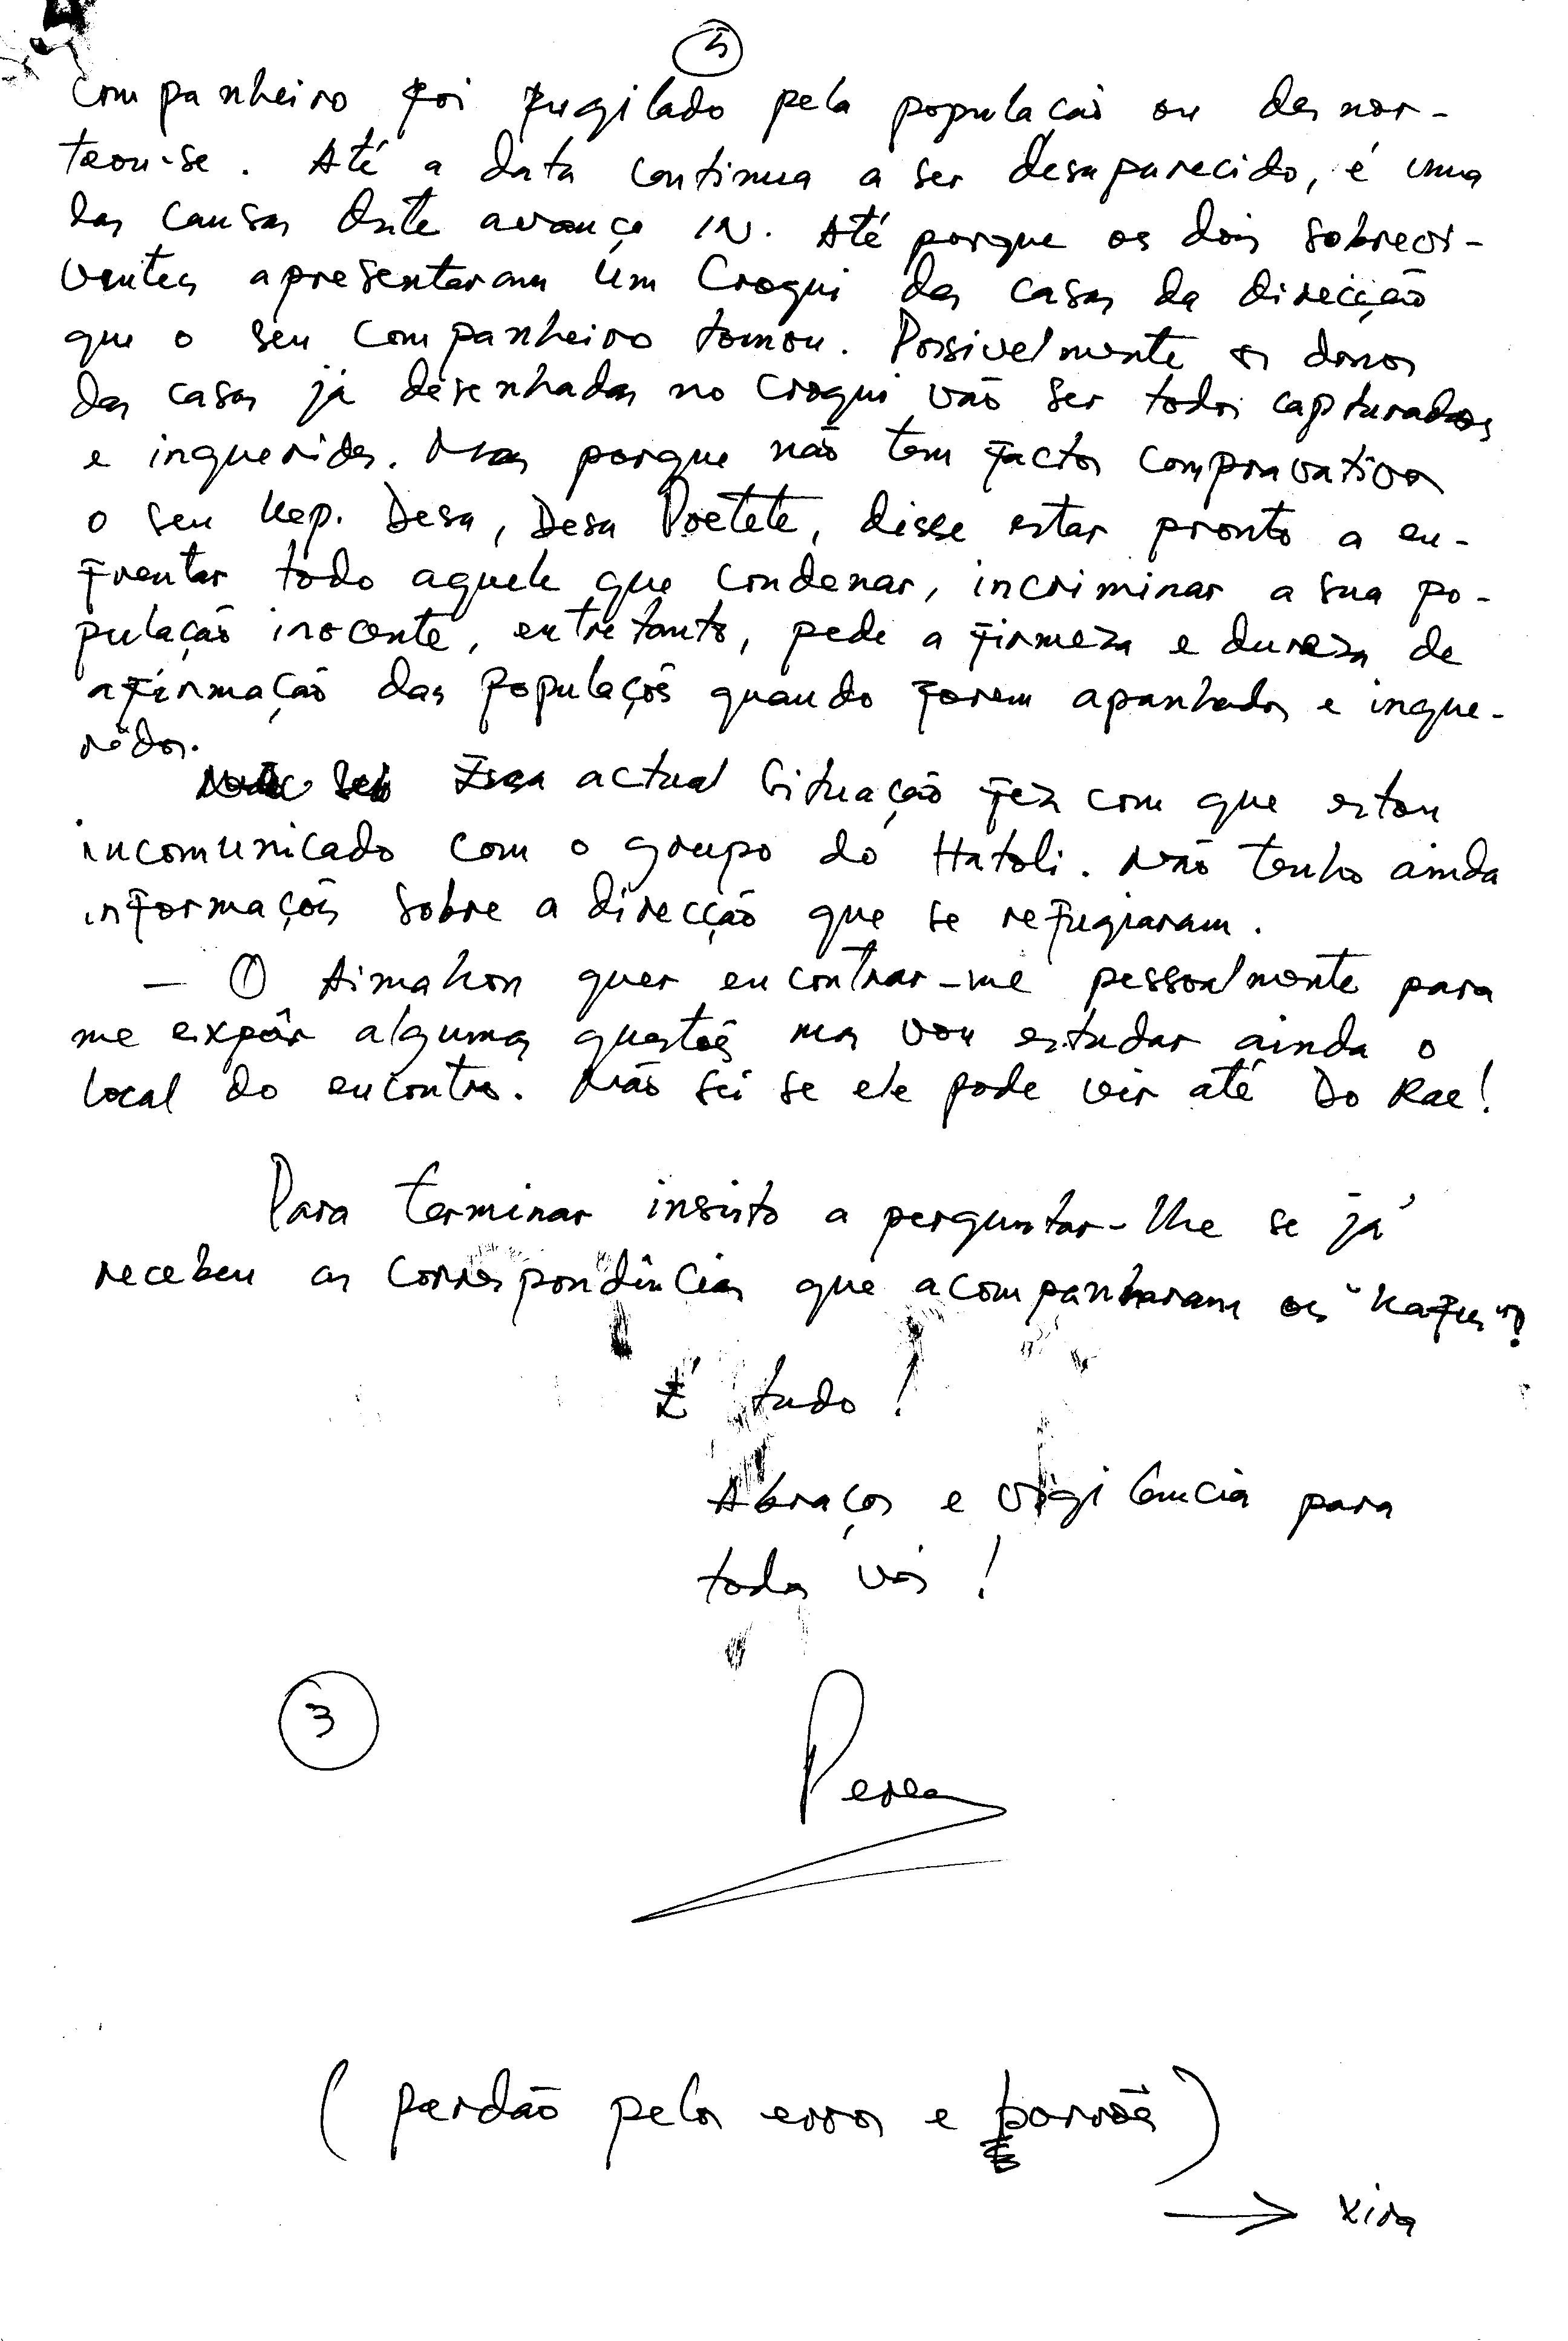 5
companheiro foi fugilado pela populacão ou desnor-
teou-se. Até a data continua a ser desaparecido, é uma
das causas deste avanço IN. Até porque os dois sobrevi-
ventes apresentaram um Croqui das casas da direcção
que o seu companheiro tomou. Possivelmente os donos
das casas já desenhadas no croqui vão ser todos capturados
e inqueridos. Mas porque não tem factos compravativos
o seu Rep. Desa, Desa Poetete, disse estar pronto a en-
frentar todo aquele que condenar, incriminar a sua po-
pulação inocente, entretanto, pede a firmeza e dureza de
afirmação das populações quando forem apanhados e inque-
rêdos.
Essa actual situação fez com que estou
incomunicado com o grupo do Hatoli. Não tenho ainda
informações sobre a direcção que se refugiaram.
- O Aimahon quer encontrar-me pessoalmente para
me expôr algumas questões mas vou estudar ainda o
local do encontro. Não sei se ele pode vir até Do Rae!
Para terminar insisto a perguntar-lhe se já
recebeu as correspondências que acompanharam os "Kafus"?
É tudo!
Abraços e vigilância para
todos vós!
3
Peres
(perdão pelos erros e borrões)
→ Xira